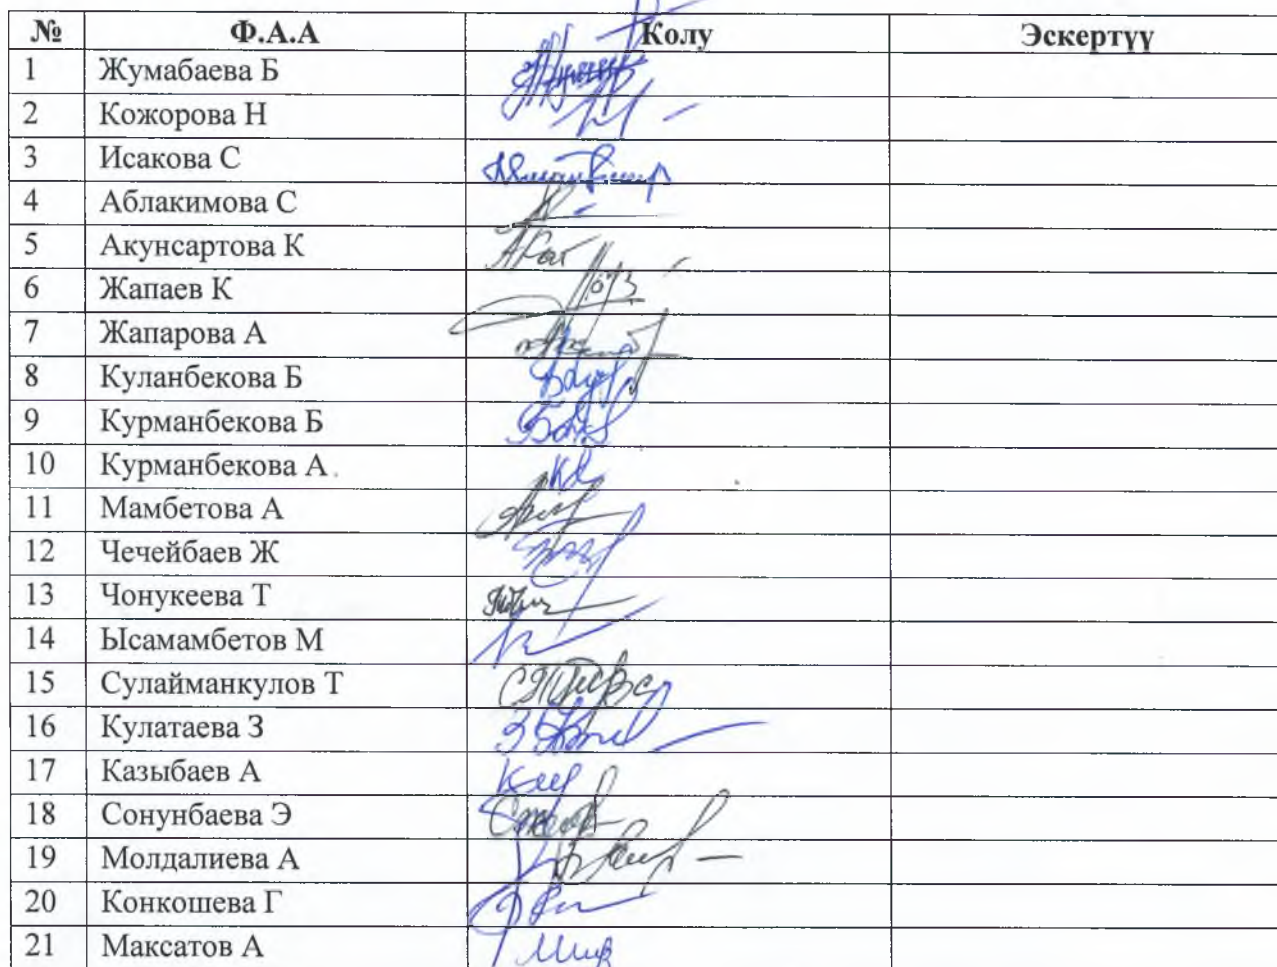 № Ф.А.А Колу Эскертүү
1 Жумабаева Б
2 Кожорова Н
3 Исакова С
4 Аблакимова С
5 Акунсартова К
6 Жапаев К
7 Жапарова А
8 Куланбекова Б
9 Курманбекова Б
10 Курманбекова А
11 Мамбетова А
12 Чечейбаев Ж
13 Чонукеева Т
14 Ысамамбетов М
15 Сулайманкулов Т
16 Кулатаева З
17 Казыбаев А
18 Сонунбаева Э
19 Молдалиева А
20 Конкошева Г
21 Максатов А